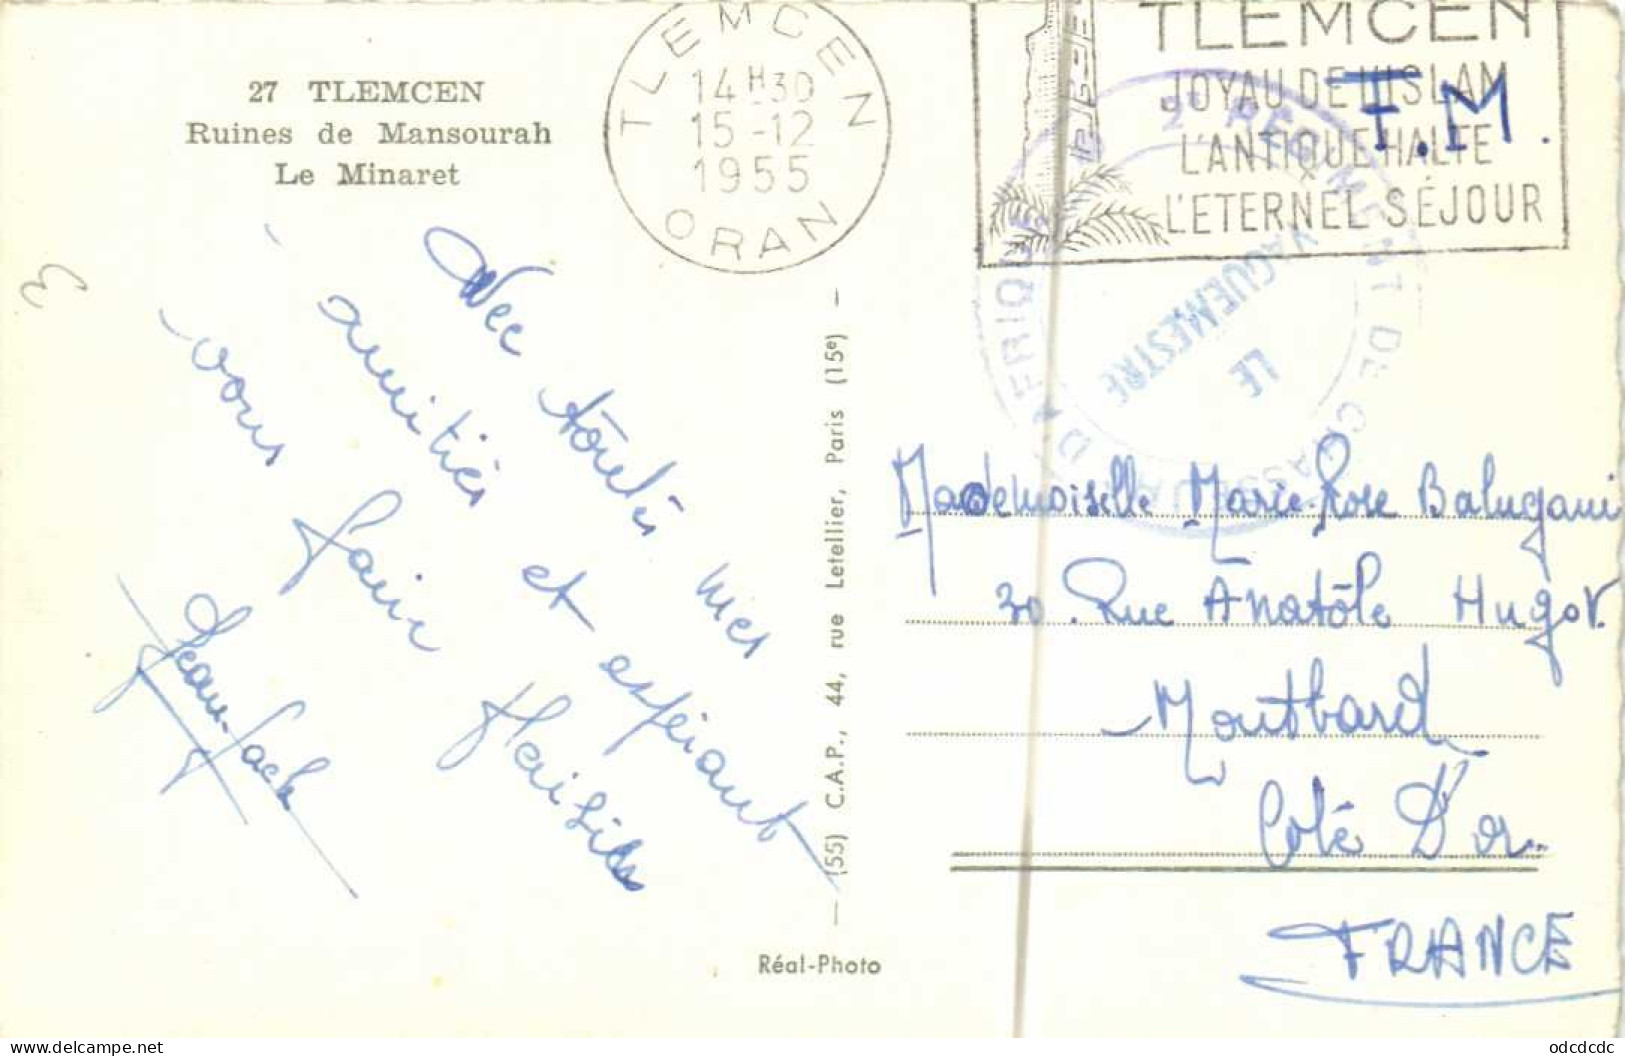 27 TLEMCEN
Ruines de Mansourah
Le Minaret
TLEMCEN
14H30
15-12
1955
ORAN
TLEMCEN
JOYAU DE L'ISLAM
L'ANTIQUE HALTE
L'ETERNEL SÉJOUR
F.M.
2e REGIMENT DE CHASSEURS D'AFRIQUE
LE
VAGUEMESTRE
3
Avec toutes mes
amitiés et espérant
vous faire plaisir
Jean-Jack
(55) C.A.P., 44, rue Letellier, Paris (15e)
Réal-Photo
Mademoiselle Marie-Rose Balugani
30. Rue Anatôle Hugot.
Montbard
Côte D'or.
FRANCE
odcdcdc
Delcampe.net